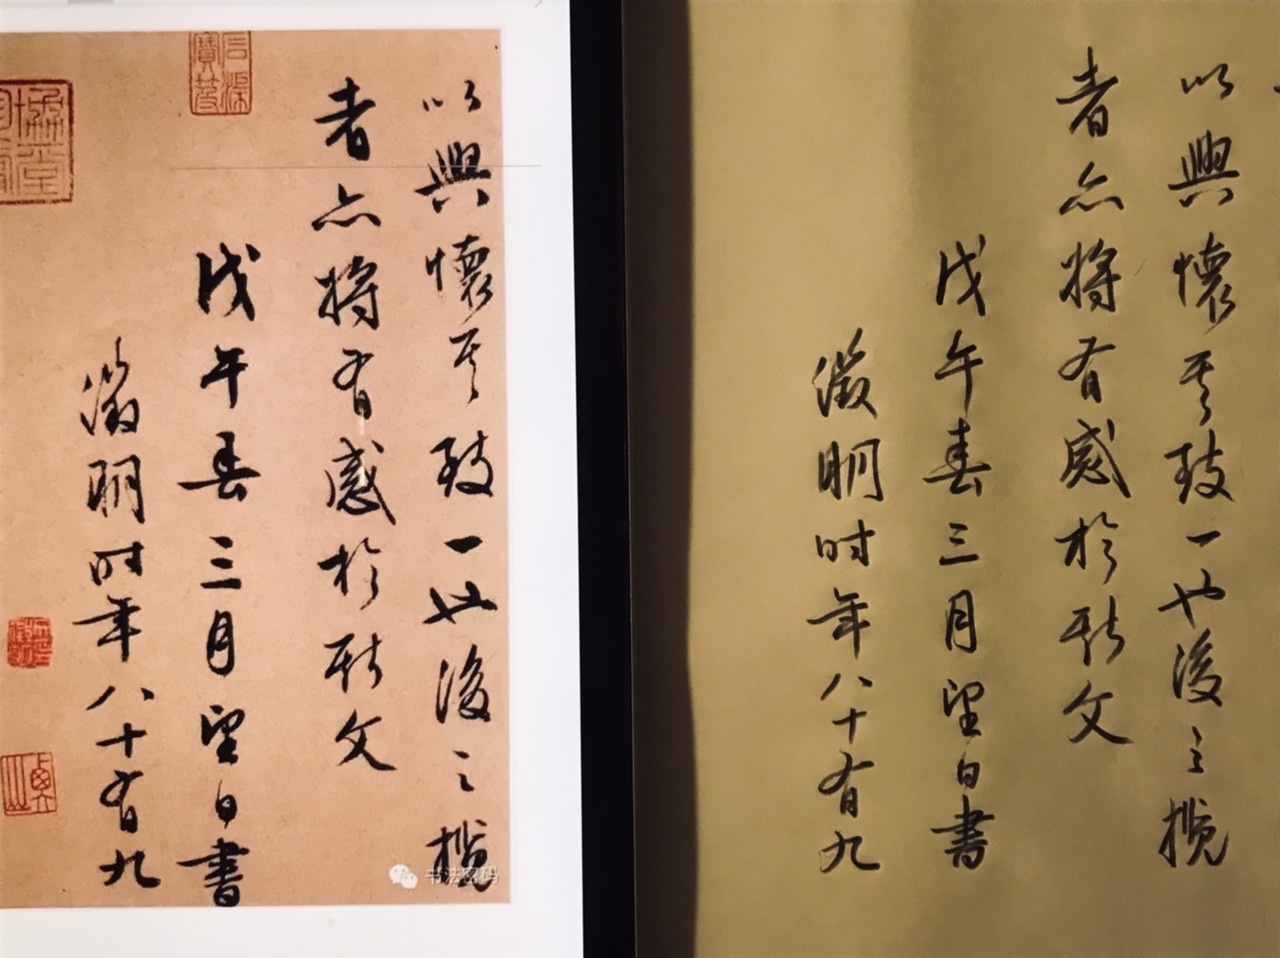 以興懷其致一也後之攬
者亦将有感於斯文
戊午春三月望日書
徵明时年八十有九
书法密码
以興懷其致一也後之攬
者亦将有感於斯文
戊午春三月望日書
徵明时年八十有九